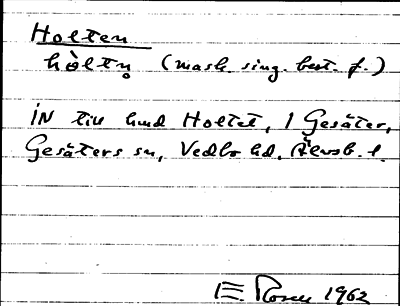 Holten
hòltn̥ (mask. sing. best. f.)
IN till hmd Holtet, 1 Gesäter,
Gesäters sn, Vedbo hd, Älvsb. l.
E. Rosen 1962